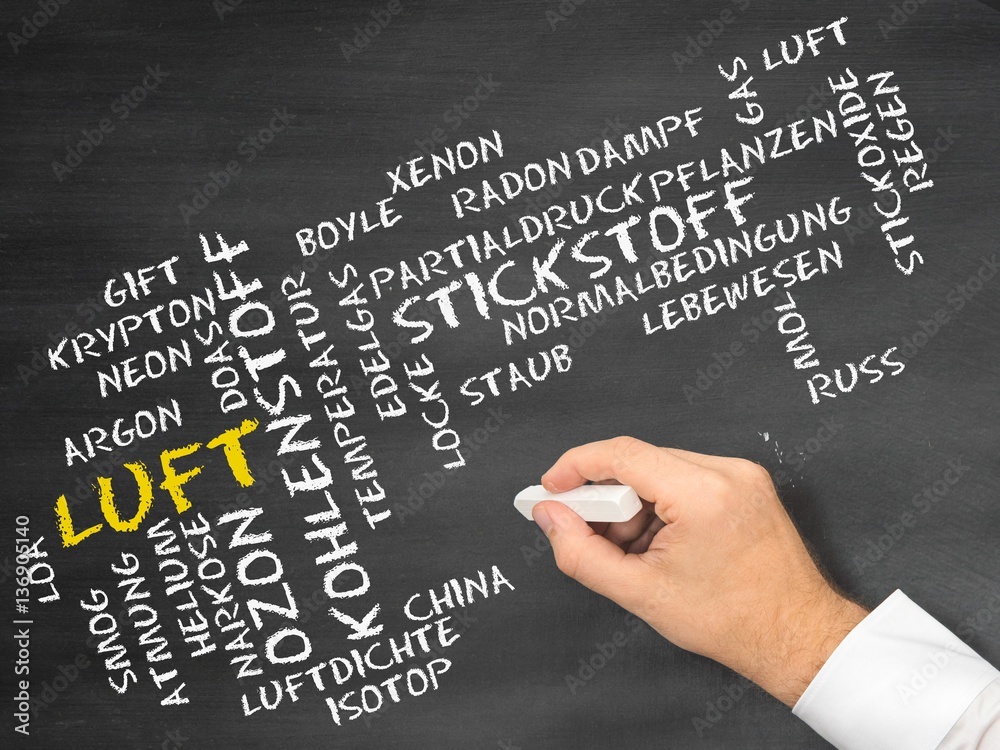 LUFT
GAS
STICKOXIDE
REGEN
XENON
RADON
DAMPF
PFLANZEN
PARTIALDRUCK
BOYLE
STICKSTOFF
NORMALBEDINGUNG
LEBEWESEN
GIFT
KRYPTON
NEON
DOAS
KOHLENSTOFF
TEMPERATUR
EDELGAS
LOCKE
STAUB
MOL
RUSS
ARGON
LUFT
LDA
SMOG
ATMUNG
HELIUM
NARKOSE
OZON
CHINA
LUFTDICHTE
ISOTOP
Adobe Stock | #136905140